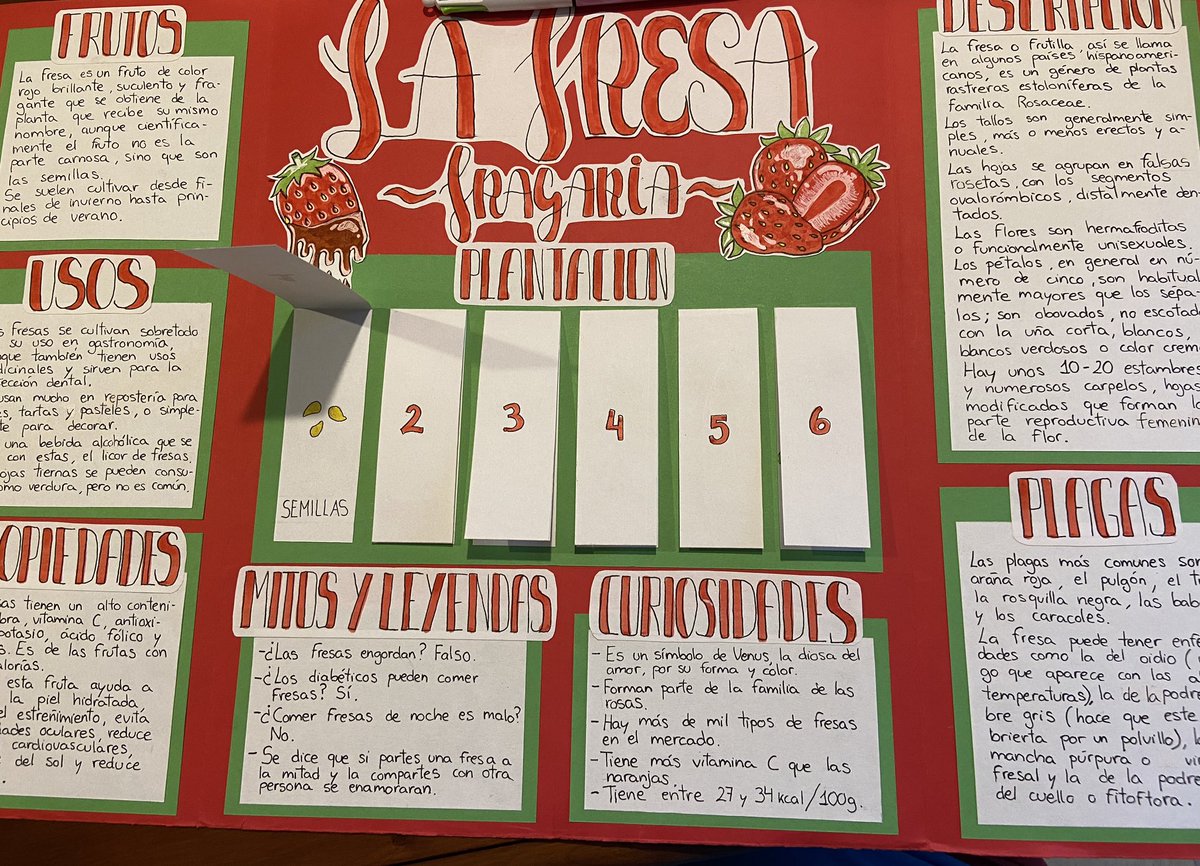 FRUTOS
La fresa es un fruto de color
rojo brillante, suculento y fra-
gante que se obtiene de la
planta que recibe su mismo
nombre, aunque científica-
mente el fruto no es la
parte carnosa, sino que son
las semillas.
Se suelen cultivar desde fi-
nales de invierno hasta prin-
cipios de verano.
USOS
fresas se cultivan sobretodo
su uso en gastronomía,
también tienen usos
y sirven para la
dental.
usan mucho en repostería para
tartas y pasteles, o simple-
para decorar.
una bebida alcohólica que se
con estas, el licor de fresas,
hojas tiernas se pueden consu-
como verdura, pero no es común.
tienen un alto conteni-
vitamina C, antioxi-
potasio, ácido fólico y
Es de las frutas con
esta fruta ayuda a
la piel hidratada,
el estreñimiento, evita
oculares, reduce
cardiovasculares,
del sol y reduce
LA FRESA
~FRAGARIA~
PLANTACION
SEMILLAS
2
3
4
5
6
MITOS Y LEYENDAS
-¿Las fresas engordan? Falso.
-¿Los diabéticos pueden comer
fresas? Sí.
-¿Comer fresas de noche es malo?
No.
- Se dice que si partes una fresa a
la mitad y la compartes con otra
persona se enamoraran.
CURIOSIDADES
- Es un símbolo de Venus, la diosa del
amor, por su forma y color.
- Forman parte de la familia de las
rosas.
- Hay más de mil tipos de fresas
en el mercado.
- Tiene más vitamina C que las
naranjas.
- Tiene entre 27 y 34 kcal/100g.
DESCRIPCION
La fresa o frutilla, así se llama
en algunos países hispanoameri-
canos, es un género de plantas
rastreras estoloníferas de la
familia Rosaceae.
Los tallos son generalmente sim-
ples, más o menos erectos y a-
nuales.
Las hojas se agrupan en falsas
rosetas, con los segmentos
ovalorómbicos, distalmente den
tados.
Las flores son hermafroditas
o funcionalmente unisexuales.
Los pétalos, en general en nú-
mero de cinco, son habitual
mente mayores que los sépa
los; son obovados, no escotad
con la uña corta, blancos,
blancos verdosos o color crem
Hay unos 10-20 estambres
y numerosos carpelos, hojas
modificadas que forman la
parte reproductiva femenin
de la flor.
PLAGAS
Las plagas más comunes son
araña roja, el pulgón, el
la rosquilla negra, las bab
y los caracoles.
La fresa puede tener enfe
dades como la del oidio (
go que aparece con las
temperaturas), la de la podre
bre gris (hace que este
brierta por un polvillo),
mancha púrpura o
fresal y la de la podre
del cuello o fitoftora.